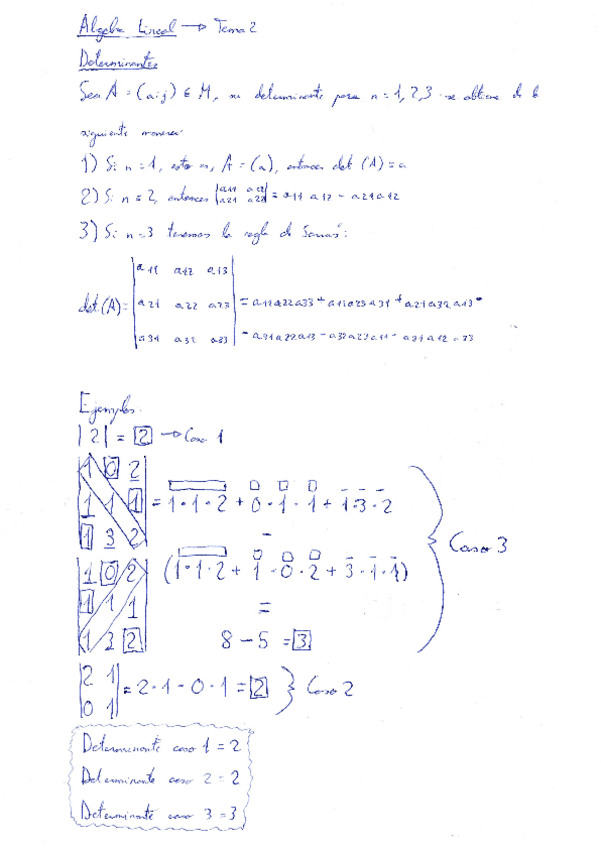 Algebra Lineal → Tema 2
Determinantes
Sea A = (aij) ∈ M, su determinante para n = 1, 2, 3 se obtiene de la
siguiente manera:
1) Si n = 1, esto es, A = (a), entonces det (A) = a
2) Si n = 2, entonces |a11 a12| = a11 a12 - a21 a12
|a21 a22|
3) Si n = 3 tenemos la regla de Sarrus:
|a11 a12 a13|
det(A) = |a21 a22 a23| = a11a22a33 + a12a23a31 + a21a32a13 -
|a31 a32 a33| - a31a22a13 - a32a23a11 - a21a12a33
Ejemplos.
|2| = 2 → Caso 1
|1 0 2|
|1 1 1| = 1·1·2 + 0·1·1 + 1·3·2
|1 3 2| -
|1 0 2| (1·1·2 + 1·0·2 + 3·1·1)
|1 1 1| =
|1 3 2| 8 - 5 = 3
Caso 3
|2 1|
|0 1| = 2·1 - 0·1 = 2 } Caso 2
Determinante caso 1 = 2
Determinante caso 2 = 2
Determinante caso 3 = 3